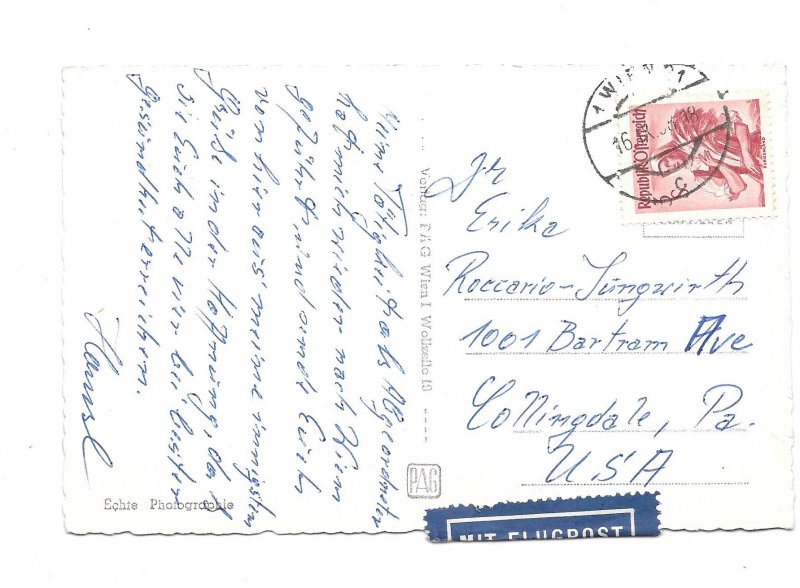 Meine Tätigkeit als Abgeordneter
hat mich wieder nach Wien
geführt und sende Euch
von hier aus meine innigsten
Grüße in der Hoffnung, daß
sie Euch alle bei bester
Gesundheit erreichen.
Hansl
Echte Photographie
Verlag: PAG Wien I Wollzeile 19
PAG
1 WIEN 21
Republik Österreich
Fr
Erika
Roccario-Jungwirth
1001 Bartram Ave
Collingdale, Pa.
USA
MIT FLUGPOST